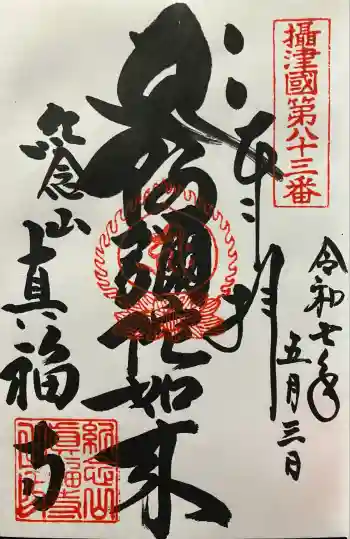 攝津國第八十三番
奉拝
令和七年
五月三日
彌陀如来
念山
真福寺